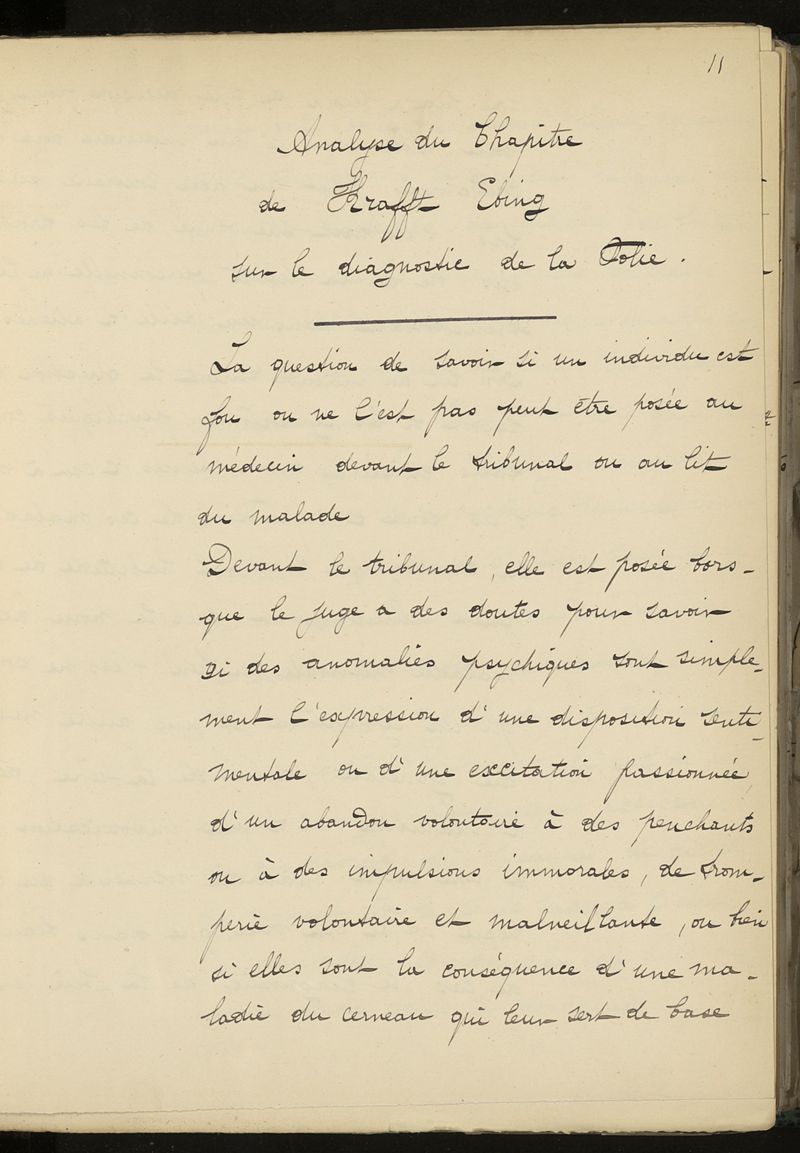 11
Analyse du Chapitre
de Krafft Ebing
sur le diagnostic de la Folie.
La question de savoir si un individu est
fou ou ne l'est pas peut être posée au
médecin devant le tribunal ou au lit
du malade
Devant le tribunal, elle est posée lors-
que le juge a des doutes pour savoir
si des anomalies psychiques sont simple-
ment l'expression d'une disposition senti-
mentale ou d'une excitation passionnée,
d'un abandon volontaire à des penchants
ou à des impulsions immorales, de trom-
perie volontaire et malveillante, ou bien
si elles sont la conséquence d'une ma-
ladie du cerveau qui leur sert de base